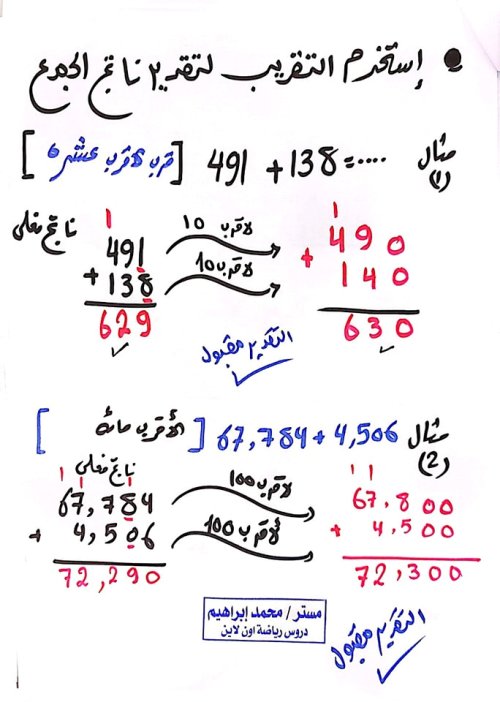 ● إستخدم التقريب لتقدير ناتج الجمع
مثال (1) 491 + 138 = .... [قرب لأقرب عشرة]
ناتج فعلي
1
491
+ 138
629
لأقرب 10
لأقرب 10
1
490
+ 140
630
التقدير مقبول
مثال (2) 67,784 + 4,506 [لأقرب مائة]
ناتج فعلي
1 1 1
67,784
+ 4,506
72,290
لأقرب 100
لأقرب 100
1 1
67,800
+ 4,500
72,300
التقدير مقبول
مستر / محمد إبراهيم
دروس رياضة اون لاين